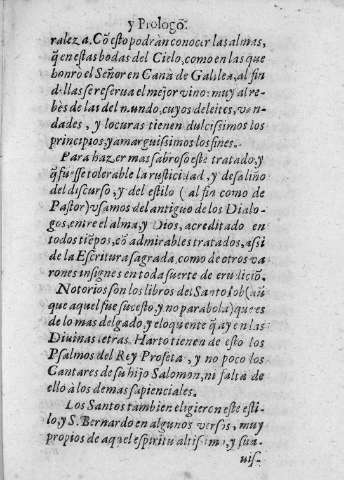 y Prologo.
raleza. Cõ esto podràn conocer las almas,
q̃ en estas bodas del Cielo, como en las que
honrò el Señor en Canà de Galilea, al fin
dellas se reserua el mejor vino: muy al re-
bès de las del mundo, cuyos deleites, van-
dades, y locuras tienen dulcissimos los
principios, y amarguissimos los fines.
Para hazer mas sabroso este tratado, y
q̃ fuesse tolerable la rusticidad, y desaliño
del discurso, y del estilo (al fin como de
Pastor) vsamos del antiguo de los Dialo-
gos, entre el alma, y Dios, acreditado en
todos tiẽpos, cõ admirables tratados, assi
de la Escritura sagrada, como de otros va
rones insignes en toda suerte de erudiciõ.
Notorios son los libros del Santo Iob (aũ
que aquel fue sucesso, y no parabola) que es
de lo mas delgado, y eloquente q̃ ay en las
Diuinas letras. Harto tienen de esto los
Psalmos del Rey Profeta, y no poco los
Cantares de su hijo Salomon, ni falta de
ello à los demas sapienciales.
Los Santos tambien eligieron este esti-
lo, y S. Bernardo en algunos versos, muy
propios de aquel espiritu altissimo, y sua-
uis-